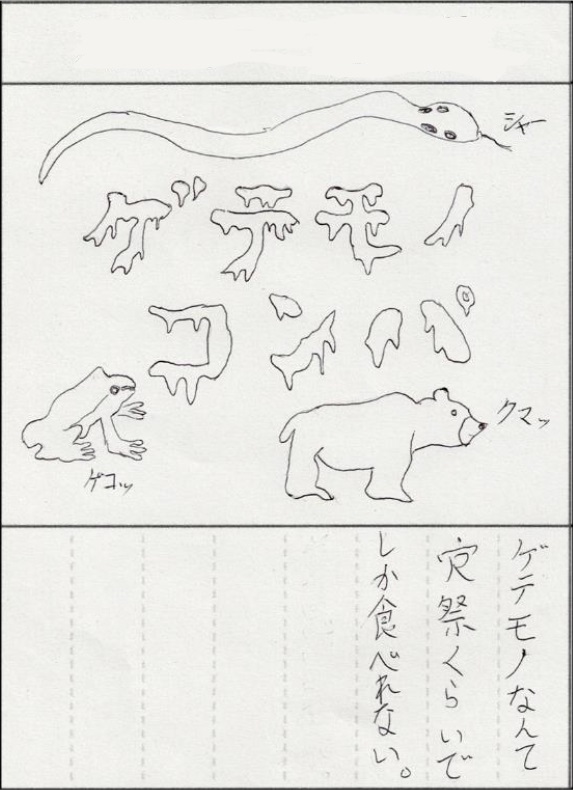 シャー
ゲテモノ
コンパ
ゲコッ
クマッ
ゲテモノなんて
祭くらいで
しか食べれない。